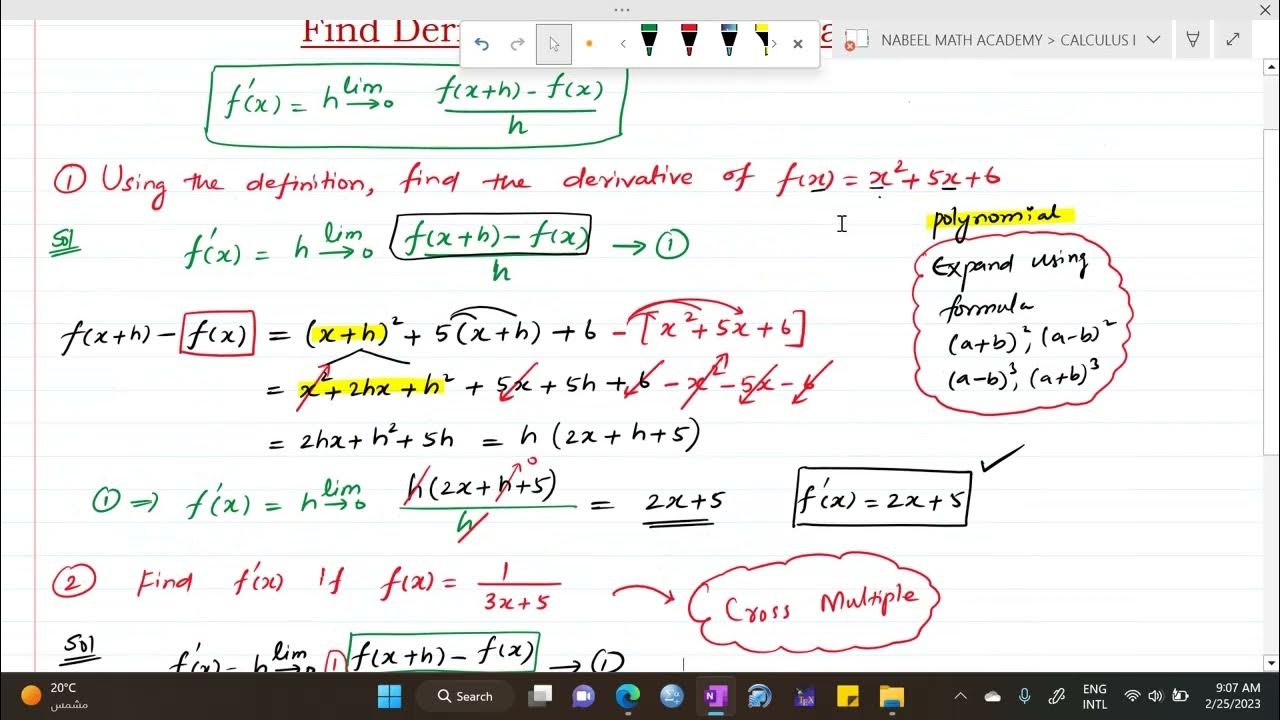 Find Deri
NABEEL MATH ACADEMY > CALCULUS I
f'(x) = lim h→0 (f(x+h) - f(x))/h
① Using the definition, find the derivative of f(x) = x² + 5x + 6
Sol
f'(x) = lim h→0 (f(x+h) - f(x))/h → ①
polynomial
Expand using
formula
(a+b)², (a-b)²
(a-b)³, (a+b)³
f(x+h) - f(x) = (x+h)² + 5(x+h) + 6 - [x² + 5x + 6]
= x² + 2hx + h² + 5x + 5h + 6 - x² - 5x - 6
= 2hx + h² + 5h = h (2x + h + 5)
① ⇒ f'(x) = lim h→0 h(2x + h + 5)/h = 2x + 5
0
f'(x) = 2x + 5 ✓
② Find f'(x) if f(x) = 1/(3x + 5)
Cross Multiple
Sol
f'(x) = lim h→0 ① f(x+h) - f(x) → ①
20°C
مشمس
Search
ENG
INTL
9:07 AM
2/25/2023